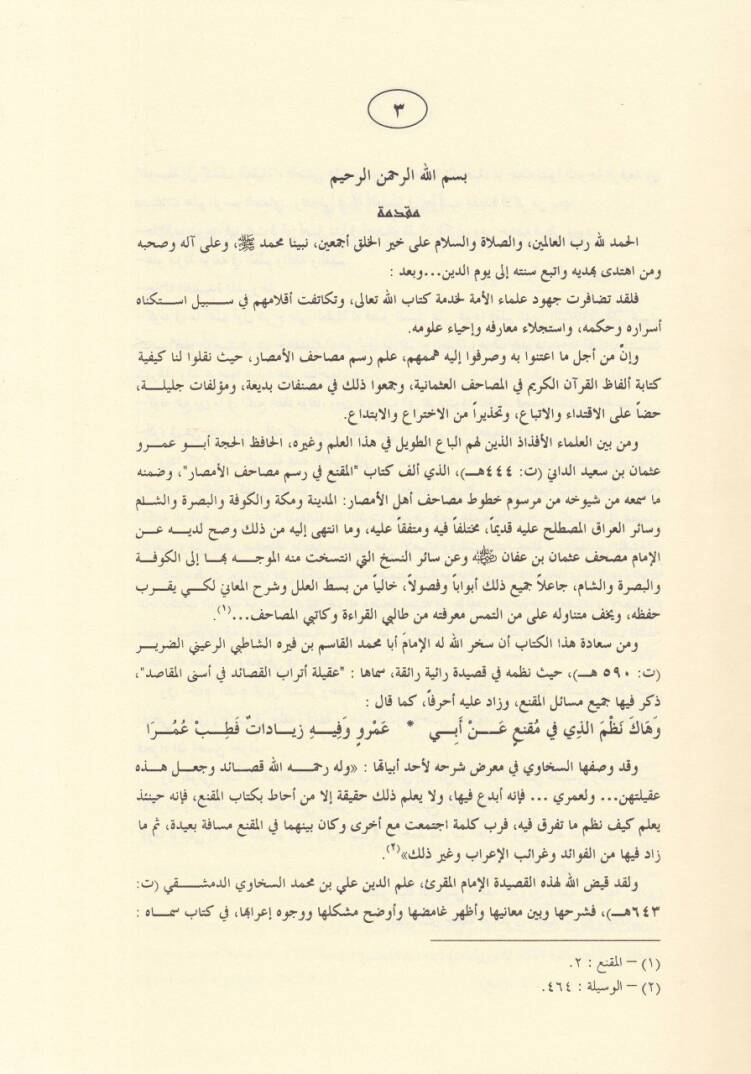 ٣
بسم الله الرحمن الرحيم
مقدمة
الحمد لله رب العالمين، والصلاة والسلام على خير الخلق أجمعين، نبينا محمد ﷺ، وعلى آله وصحبه
ومن اهتدى بهديه واتبع سنته إلى يوم الدين...وبعد :
فلقد تضافرت جهود علماء الأمة لخدمة كتاب الله تعالى، وتكاتفت أقلامهم في سبيل استكناه
أسراره وحكمه، واستجلاء معارفه وإحياء علومه.
وإنَّ من أجل ما اعتنوا به وصرفوا إليه هممهم، علم رسم مصاحف الأمصار، حيث نقلوا لنا كيفية
كتابة ألفاظ القرآن الكريم في المصاحف العثمانية، وجمعوا ذلك في مصنفات بديعة، ومؤلفات جليلة،
حضاً على الاقتداء والاتباع، وتحذيراً من الاختراع والابتداع.
ومن بين العلماء الأفذاذ الذين لهم الباع الطويل في هذا العلم وغيره، الحافظ الحجة أبو عمرو
عثمان بن سعيد الداني (ت: ٤٤٤هـ)، الذي ألف كتاب "المقنع في رسم مصاحف الأمصار"، وضمنه
ما سمعه من شيوخه من مرسوم خطوط مصاحف أهل الأمصار: المدينة ومكة والكوفة والبصرة والشام
وسائر العراق المصطلح عليه قديماً، مختلفاً فيه ومتفقاً عليه، وما انتهى إليه من ذلك وصح لديه عن
الإمام مصحف عثمان بن عفان ﷺ وعن سائر النسخ التي انتسخت منه الموجه بها إلى الكوفة
والبصرة والشام، جاعلاً جميع ذلك أبواباً وفصولاً، خالياً من بسط العلل وشرح المعاني لكي يقرب
حفظه، ويخف متناوله على من التمس معرفته من طالبي القراءة وكاتبي المصاحف...(١).
ومن سعادة هذا الكتاب أن سخر الله له الإمامَ أبا محمد القاسم بن فيره الشاطبي الرعيني الضرير
(ت: ٥٩٠ هـ)، حيث نظمه في قصيدة رائية رائقة، سماها : "عقيلة أتراب القصائد في أسنى المقاصد"،
ذكر فيها جميع مسائل المقنع، وزاد عليه أحرفاً، كما قال :
وَهَاكَ نَظْمَ الذِي في مُقنعٍ عَـنْ أَبِي * عَمْرٍو وَفِيهِ زيـاداتٌ فَطِبْ عُمُـرَا
وقد وصفها السخاوي في معرض شرحه لأحد أبياتها : «وله رحمه الله قصائد وجعل هذه
عقيلتهن... ولعمري ... فإنه أبدع فيها، ولا يعلم ذلك حقيقة إلا من أحاط بكتاب المقنع، فإنه حينئذ
يعلم كيف نظم ما تفرق فيه، فرب كلمة اجتمعت مع أخرى وكان بينهما في المقنع مسافة بعيدة، ثم ما
زاد فيها من الفوائد وغرائب الإعراب وغير ذلك»(٢).
ولقد قيض الله لهذه القصيدة الإمام المقرئ، علم الدين علي بن محمد السخاوي الدمشقي (ت:
٦٤٣هـ)، فشرحها وبين معانيها وأظهر غامضها وأوضح مشكلها ووجوه إعرابها، في كتاب سماه :
(١) – المقنع : ٢.
(٢) – الوسيلة : ٤٦٤.